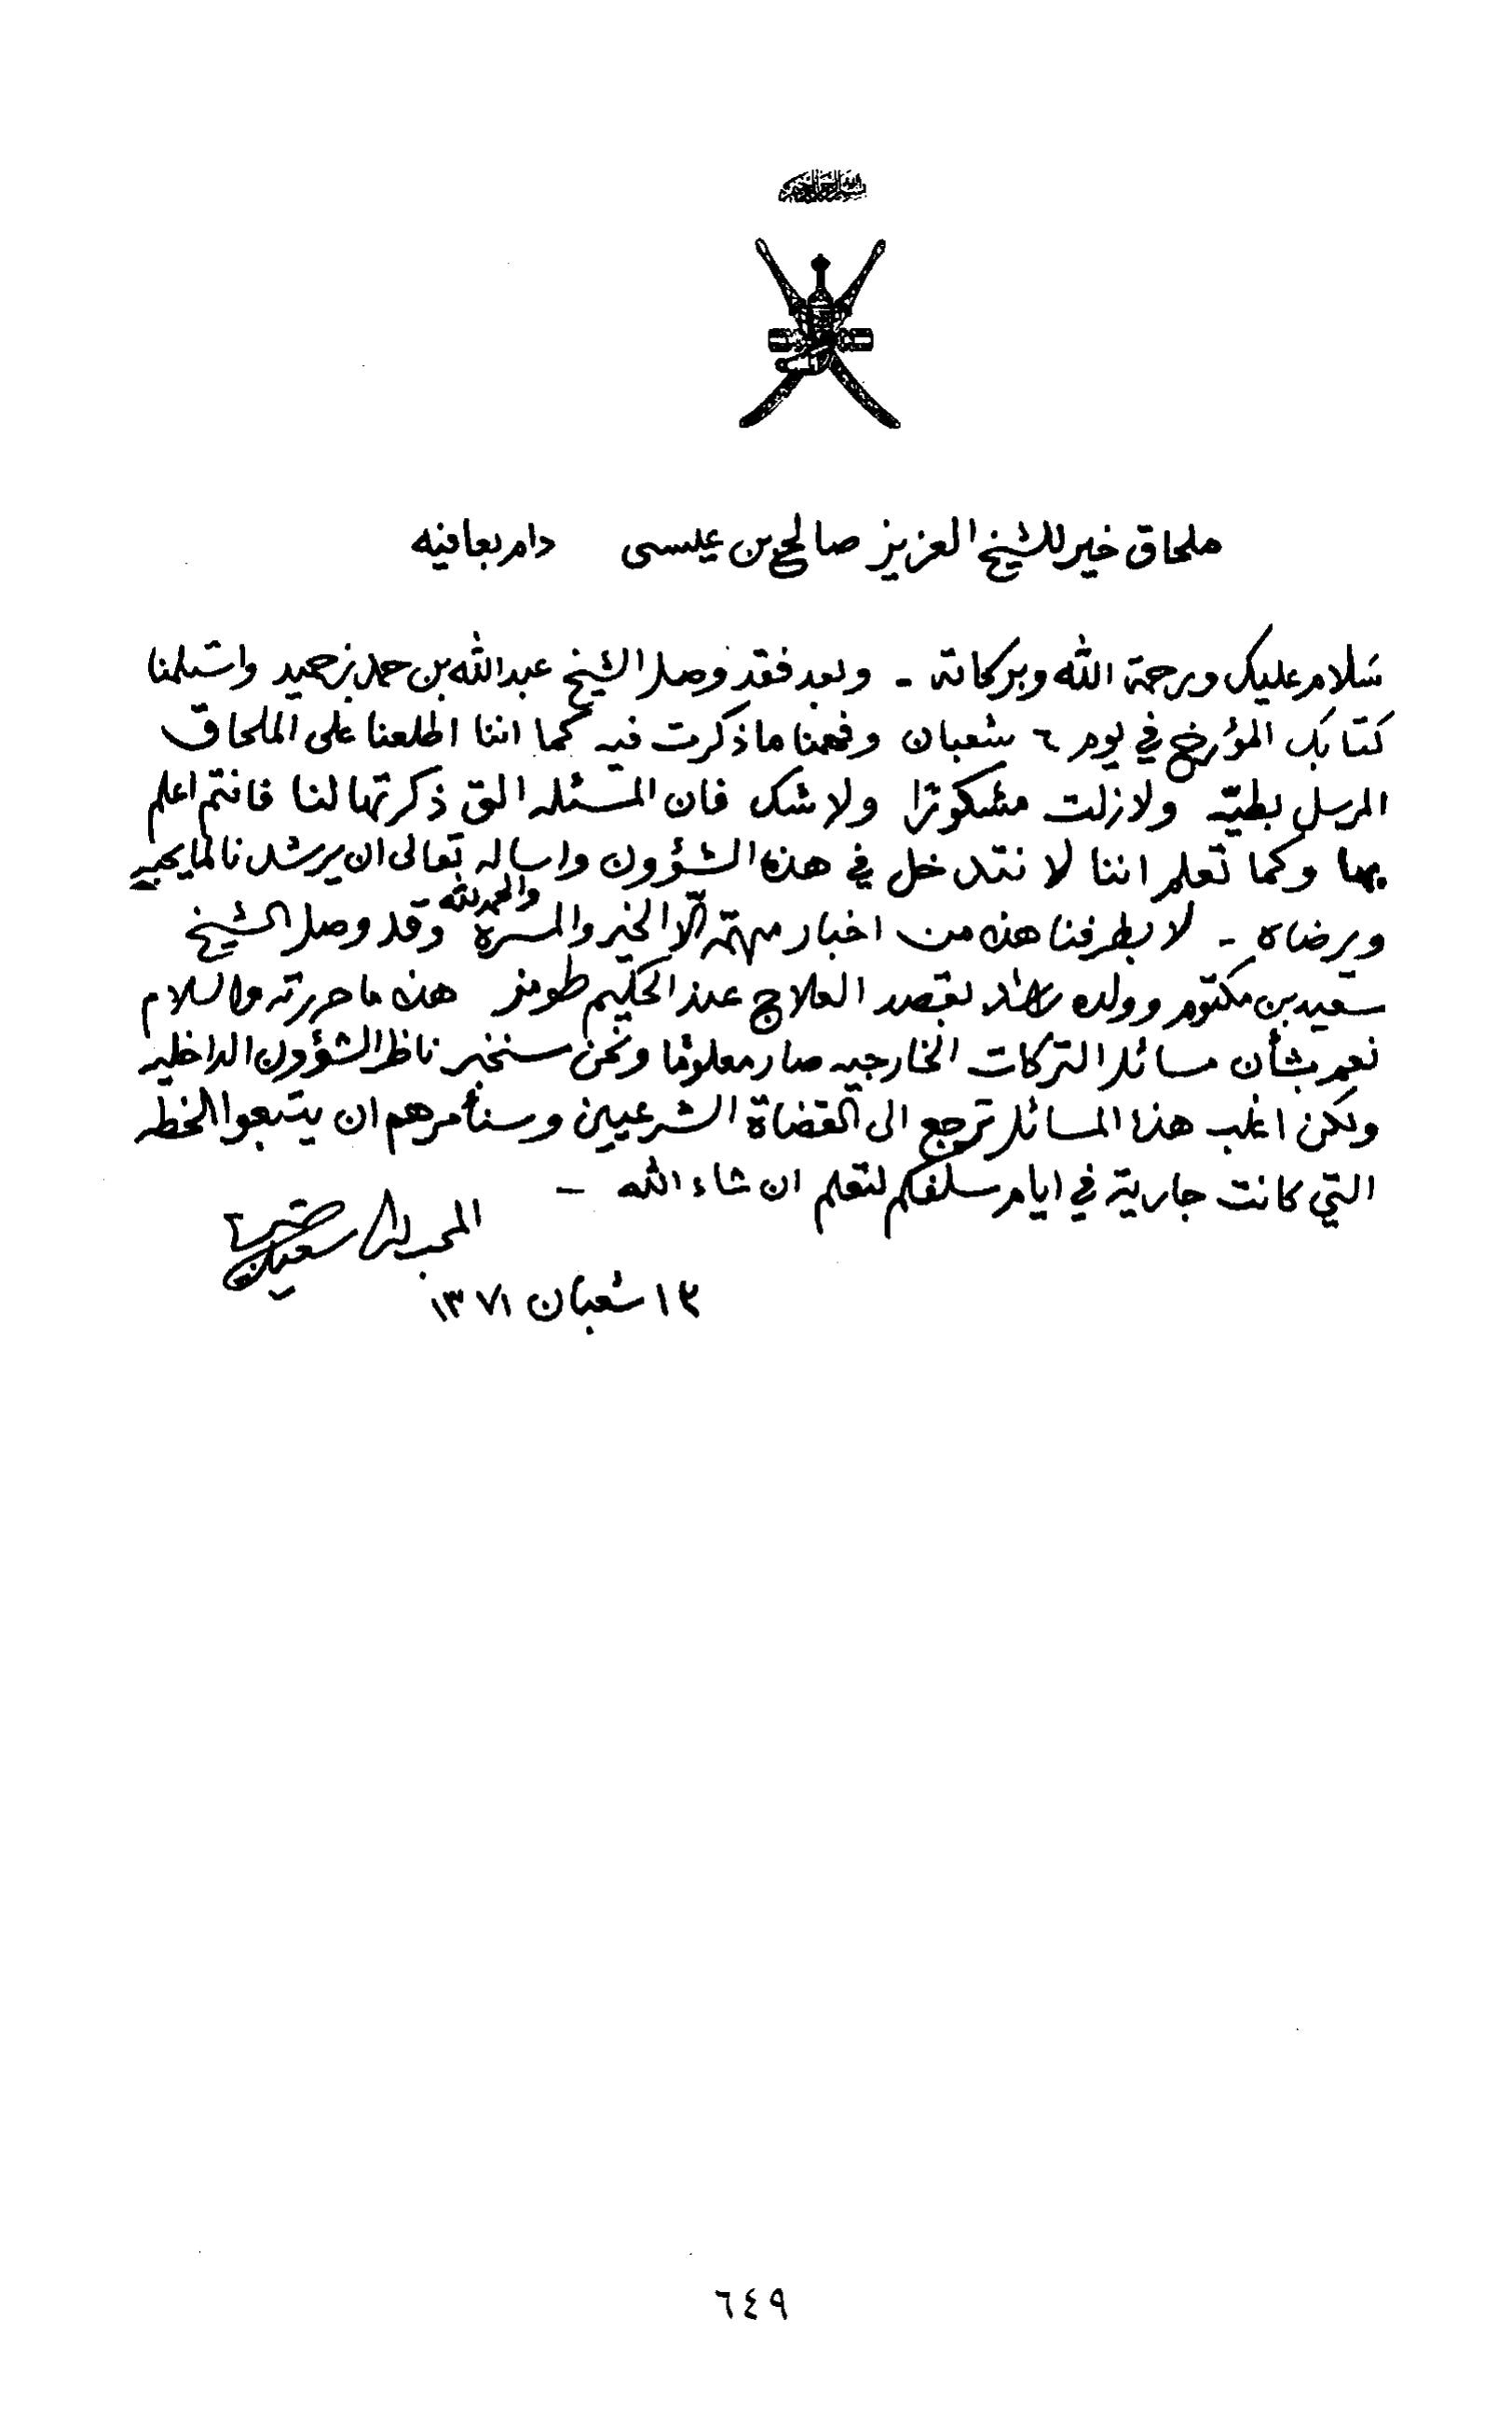 ملحاق خير للشيخ العزيز صالح بن عيسى دام بعافيه
سلام عليك ورحمة الله وبركاته - وبعد فقد وصل الشيخ عبدالله بن حمد بن حميد واستلمنا
كتابك المؤرخ في يوم ٦ شعبان وفهمنا ما ذكرت فيه كما اننا اطلعنا على الملحاق
المرسل بطيّه ولا زلت مشكورًا ولا شك فان المسئله التي ذكرتها لنا فانتم اعلم
بها وكما تعلم اننا لا نتدخل في هذه الشؤون واساله تعالى ان يرشدنا لما يحبه
ويرضاه - لا بطرفنا هذه من اخبار مهمّه الّا الخير والمسرة والحمد لله وقد وصل الشيخ
سعيد بن مكتوم وولده راشد بقصد العلاج عند الحكيم طومز هذه ما حررته والسلام
نعم بشأن مسائل التركات الخارجيه صار معلومًا ونحن سنخبر ناظر الشؤون الداخليه
ولكن اغلب هذه المسائل ترجع الى القضاة الشرعيين وسنأمرهم ان يتبعوا الخطه
التي كانت جارية في ايام سلفكم لتعلم ان شاء الله -
المحب لك سعيد
١٣ شعبان ١٣٧١
٦٤٩